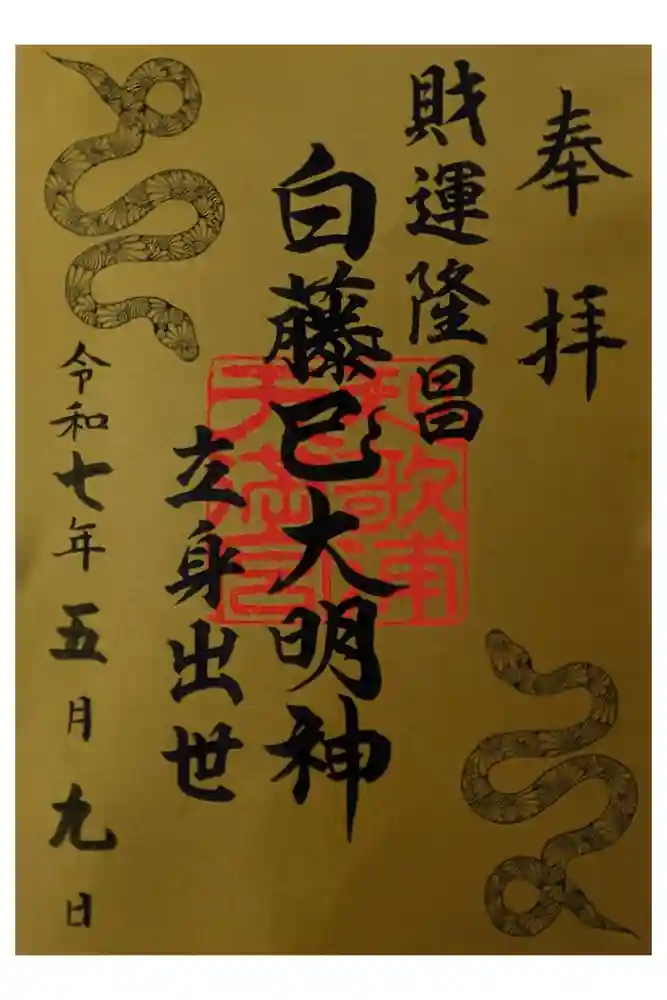 奉拝
財運隆昌
白藤巳大明神
立身出世
令和七年五月九日